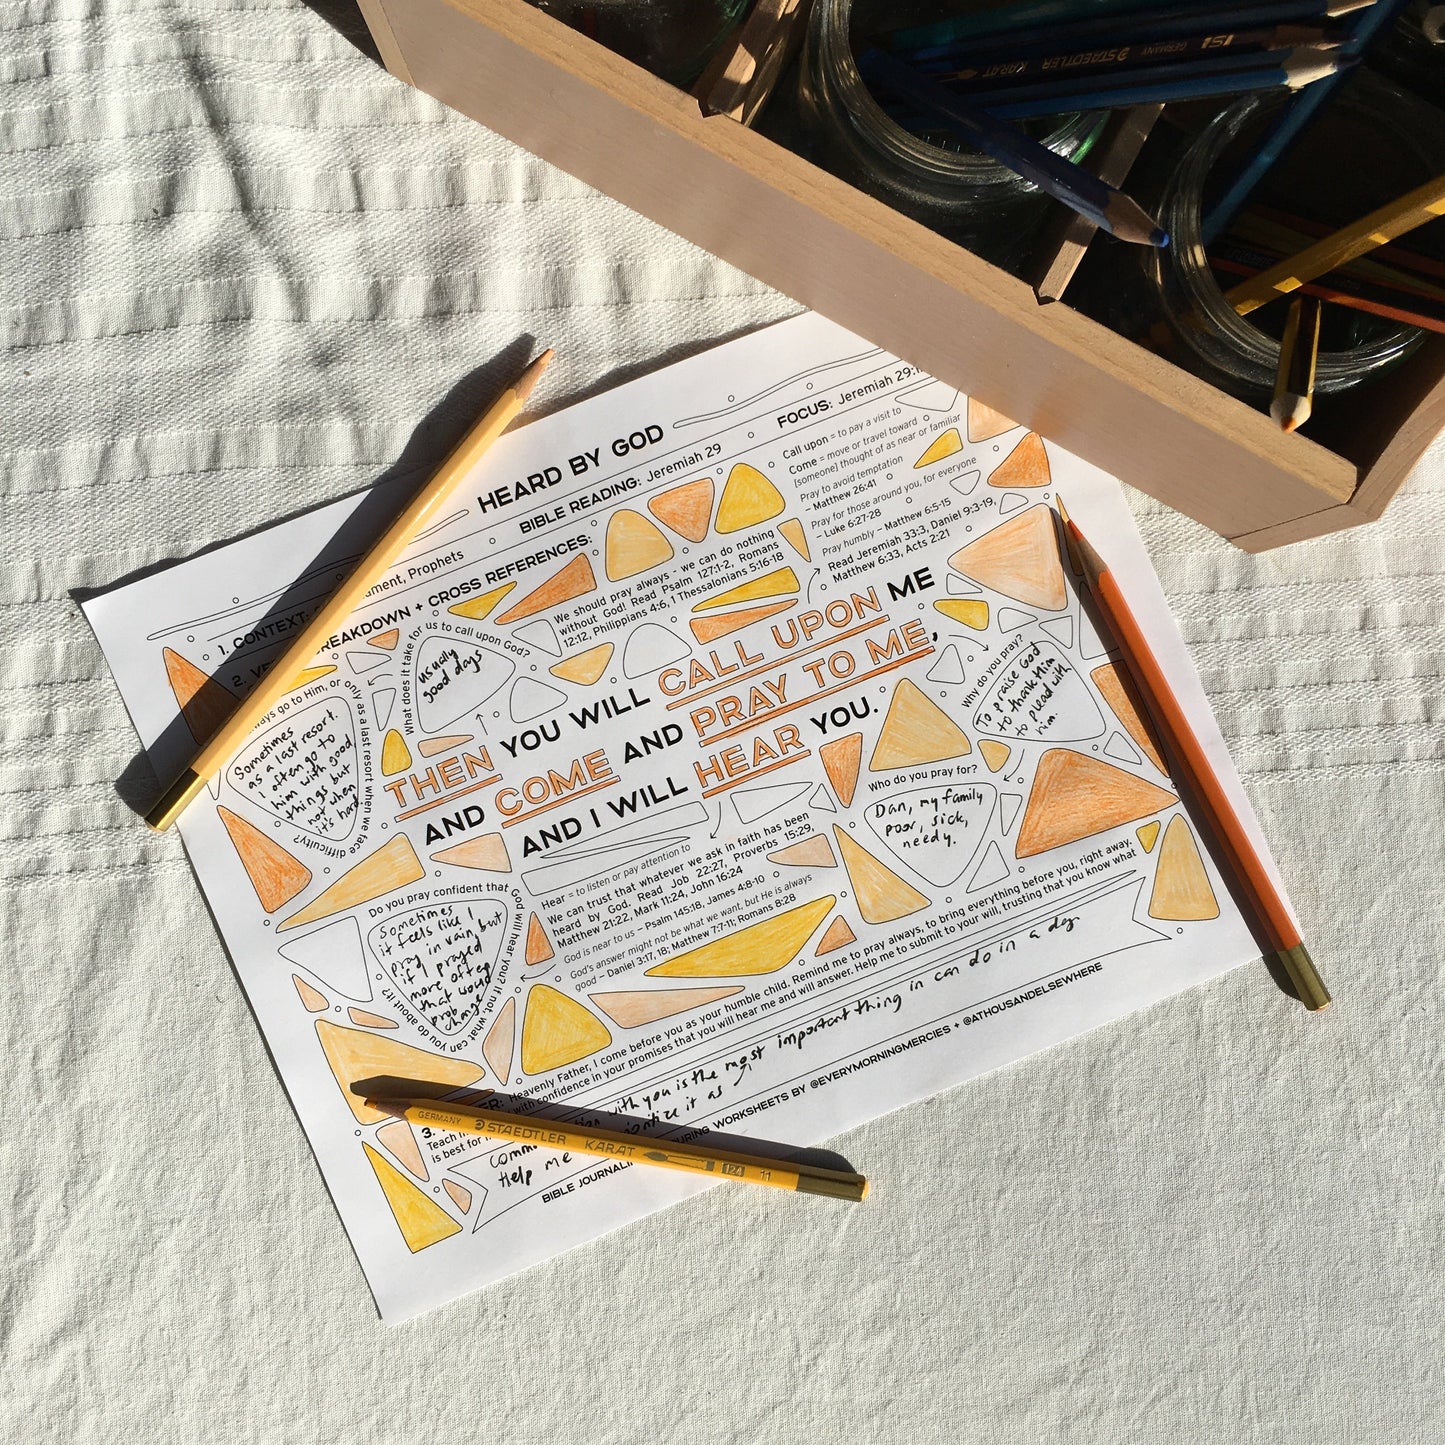 HEARD BY GOD
BIBLE READING: Jeremiah 29
FOCUS: Jeremiah 29:
1. CONTEXT:
Prophets
2.
BREAKDOWN + CROSS REFERENCES:
We should pray always - we can do nothing
without God! Read Psalm 127:1-2, Romans
12:12, Philippians 4:6, 1 Thessalonians 5:16-18
Call upon = to pay a visit to
Come = move or travel toward
[someone] thought of as near or familiar
Pray to avoid temptation
– Matthew 26:41
Pray for those around you, for everyone
– Luke 6:27-28
Pray humbly – Matthew 6:5-15
Read Jeremiah 33:3, Daniel 9:3-19,
Matthew 6:33, Acts 2:21
What does it take for us to call upon God?
usually
good days
always go to Him, or
only as a last resort when we face difficulty?
Sometimes
as a last resort.
I often go to
him with good
things but
not when
it's hard
THEN YOU WILL CALL UPON ME
AND COME AND PRAY TO ME,
AND I WILL HEAR YOU.
Why do you pray?
To praise God
to thank him
to plead with
him.
Who do you pray for?
Dan, my family
poor, sick,
needy.
Do you pray confident that
God will hear you? If not, what
can you do about it?
Sometimes
it feels like I
pray in vain, but
if I prayed
more often
that would
prob
change
Hear = to listen or pay attention to
We can trust that whatever we ask in faith has been
heard by God. Read Job 22:27, Proverbs 15:29,
Matthew 21:22, Mark 11:24, John 16:24
God is near to us – Psalm 145:18, James 4:8-10
God's answer might not be what we want, but He is always
good – Daniel 3:17, 18; Matthew 7:7-11; Romans 8:28
3.
Heavenly Father, I come before you as your humble child. Remind me to pray always, to bring everything before you, right away.
Teach
with confidence in your promises that you will hear me and will answer. Help me to submit to your will, trusting that you know what
is best for
with you is the most important thing in can do in a day.
Help me
it as
BIBLE
WORKSHEETS BY @EVERYMORNINGMERCIES + @ATHOUSANDELSEWHERE
GERMANY STAEDTLER KARAT 124 11
STAEDTLER KARAT
GERMANY